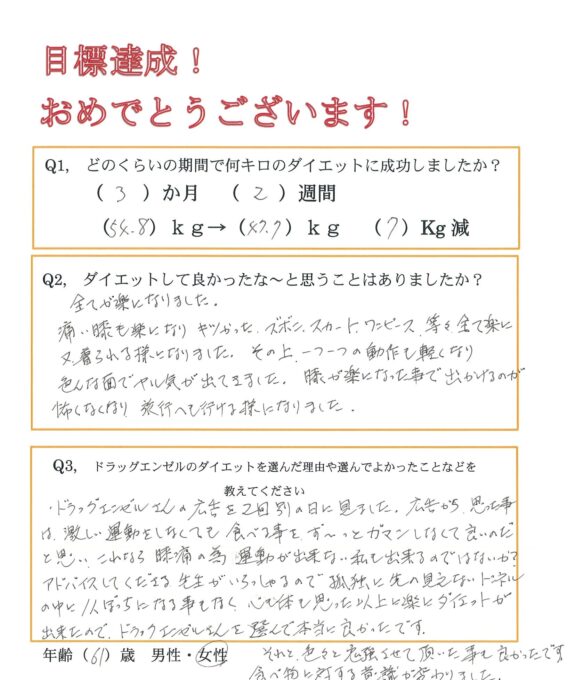 目標達成！
おめでとうございます！
Q1, どのくらいの期間で何キロのダイエットに成功しましたか？
（ 3 ）か月 （ 2 ）週間
（54.8）ｋｇ→（47.7）ｋｇ （7）Kg減
Q2, ダイエットして良かったな～と思うことはありましたか？
全てが楽になりました。
痛い膝も楽になり キツかった、ズボン、スカート、ワンピース、等も全て楽に
又着られる様になりました。その上、一つ一つの動作も軽くなり
色んな面でヤル気が出てきました。膝が楽になった事で出かけるのが
怖くなくなり 旅行へも行ける様になりました。
Q3, ドラッグエンゼルのダイエットを選んだ理由や選んでよかったことなどを
教えてください
・ドラッグエンゼルさんの広告を2回別の日に見ました。広告から思った事
は、激しい運動をしなくても 食べる事を、ず〜っとガマンしなくて良いのだ
と思い、これなら 膝痛の為 運動が出来ない私も出来るのではないか？
アドバイスしてくださる先生がいらっしゃるので 孤独に先の見えないトンネル
の中に1人ぼっちになる事もなく、心も体も思った以上に楽にダイエットが
出来たので、ドラッグエンゼルさんを選んで本当に良かったです。
年齢（61）歳 男性・女性 それと、色々と勉強させて頂いた事も良かったです
食べ物に対する意識が変わりました。